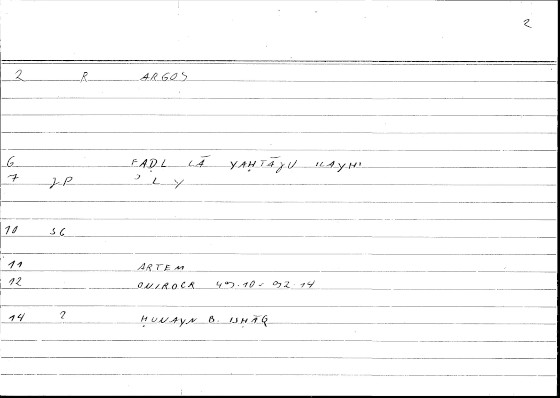 2
2 R ARGOS
6 FAḌL LĀ YAḤTĀǦU ILAYHI
7 gP ʾ L Y
10 SG
11 ARTEM
12 ONIROCR 49.10 - 92.14
14 ? ḤUNAYN B. ISḤĀQ